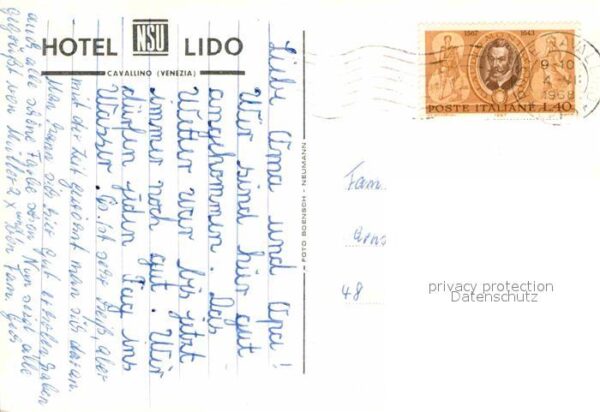 HOTEL NSU LIDO
CAVALLINO (VENEZIA)
Liebe Oma und Opa!
Wir sind hier gut
angekommen. Das
Wetter war bis jetzt
immer noch gut. Wir
dürfen jeden Tag ins
Wasser. Es ist sehr heiß, aber
mit der Zeit gewöhnt man sich daran.
Man kann sich hier gut erholen haben
auch alle schöne Nun seid alle
gegrüßt von
FOTO BOENSCH - NEUMANN
1567 1643
POSTE ITALIANE L.40
9-10
1968
Fam.
48
privacy protection
Datenschutz